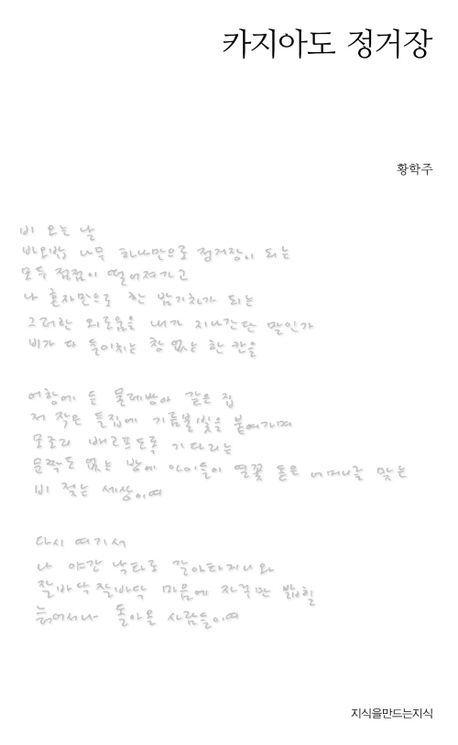 카지아도 정거장
황학주
비 오는 날
바오밥 나무 하나만으로 정거장이 되는
모두 점점이 떨어져가고
나 혼자만으로 한 밤기차가 되는
그러한 외로움을 내가 지나간단 말인가
비가 다 들이치는 창 없는 한 칸을
어항에 든 물레방아 같은 집
저 작은 돌집에 기름불빛을 붙여가며
모조리 배고프도록 기다리는
문짝도 없는 방에 아이들이 열꽃 돋은 어머니를 맞는
비 젖는 세상이여
다시 여기서
나 야간 낙타로 갈아타려니와
잘바닥잘바닥 마음에 자국만 밟힐
늙어서나 돌아올 사람들이여
지식을만드는지식